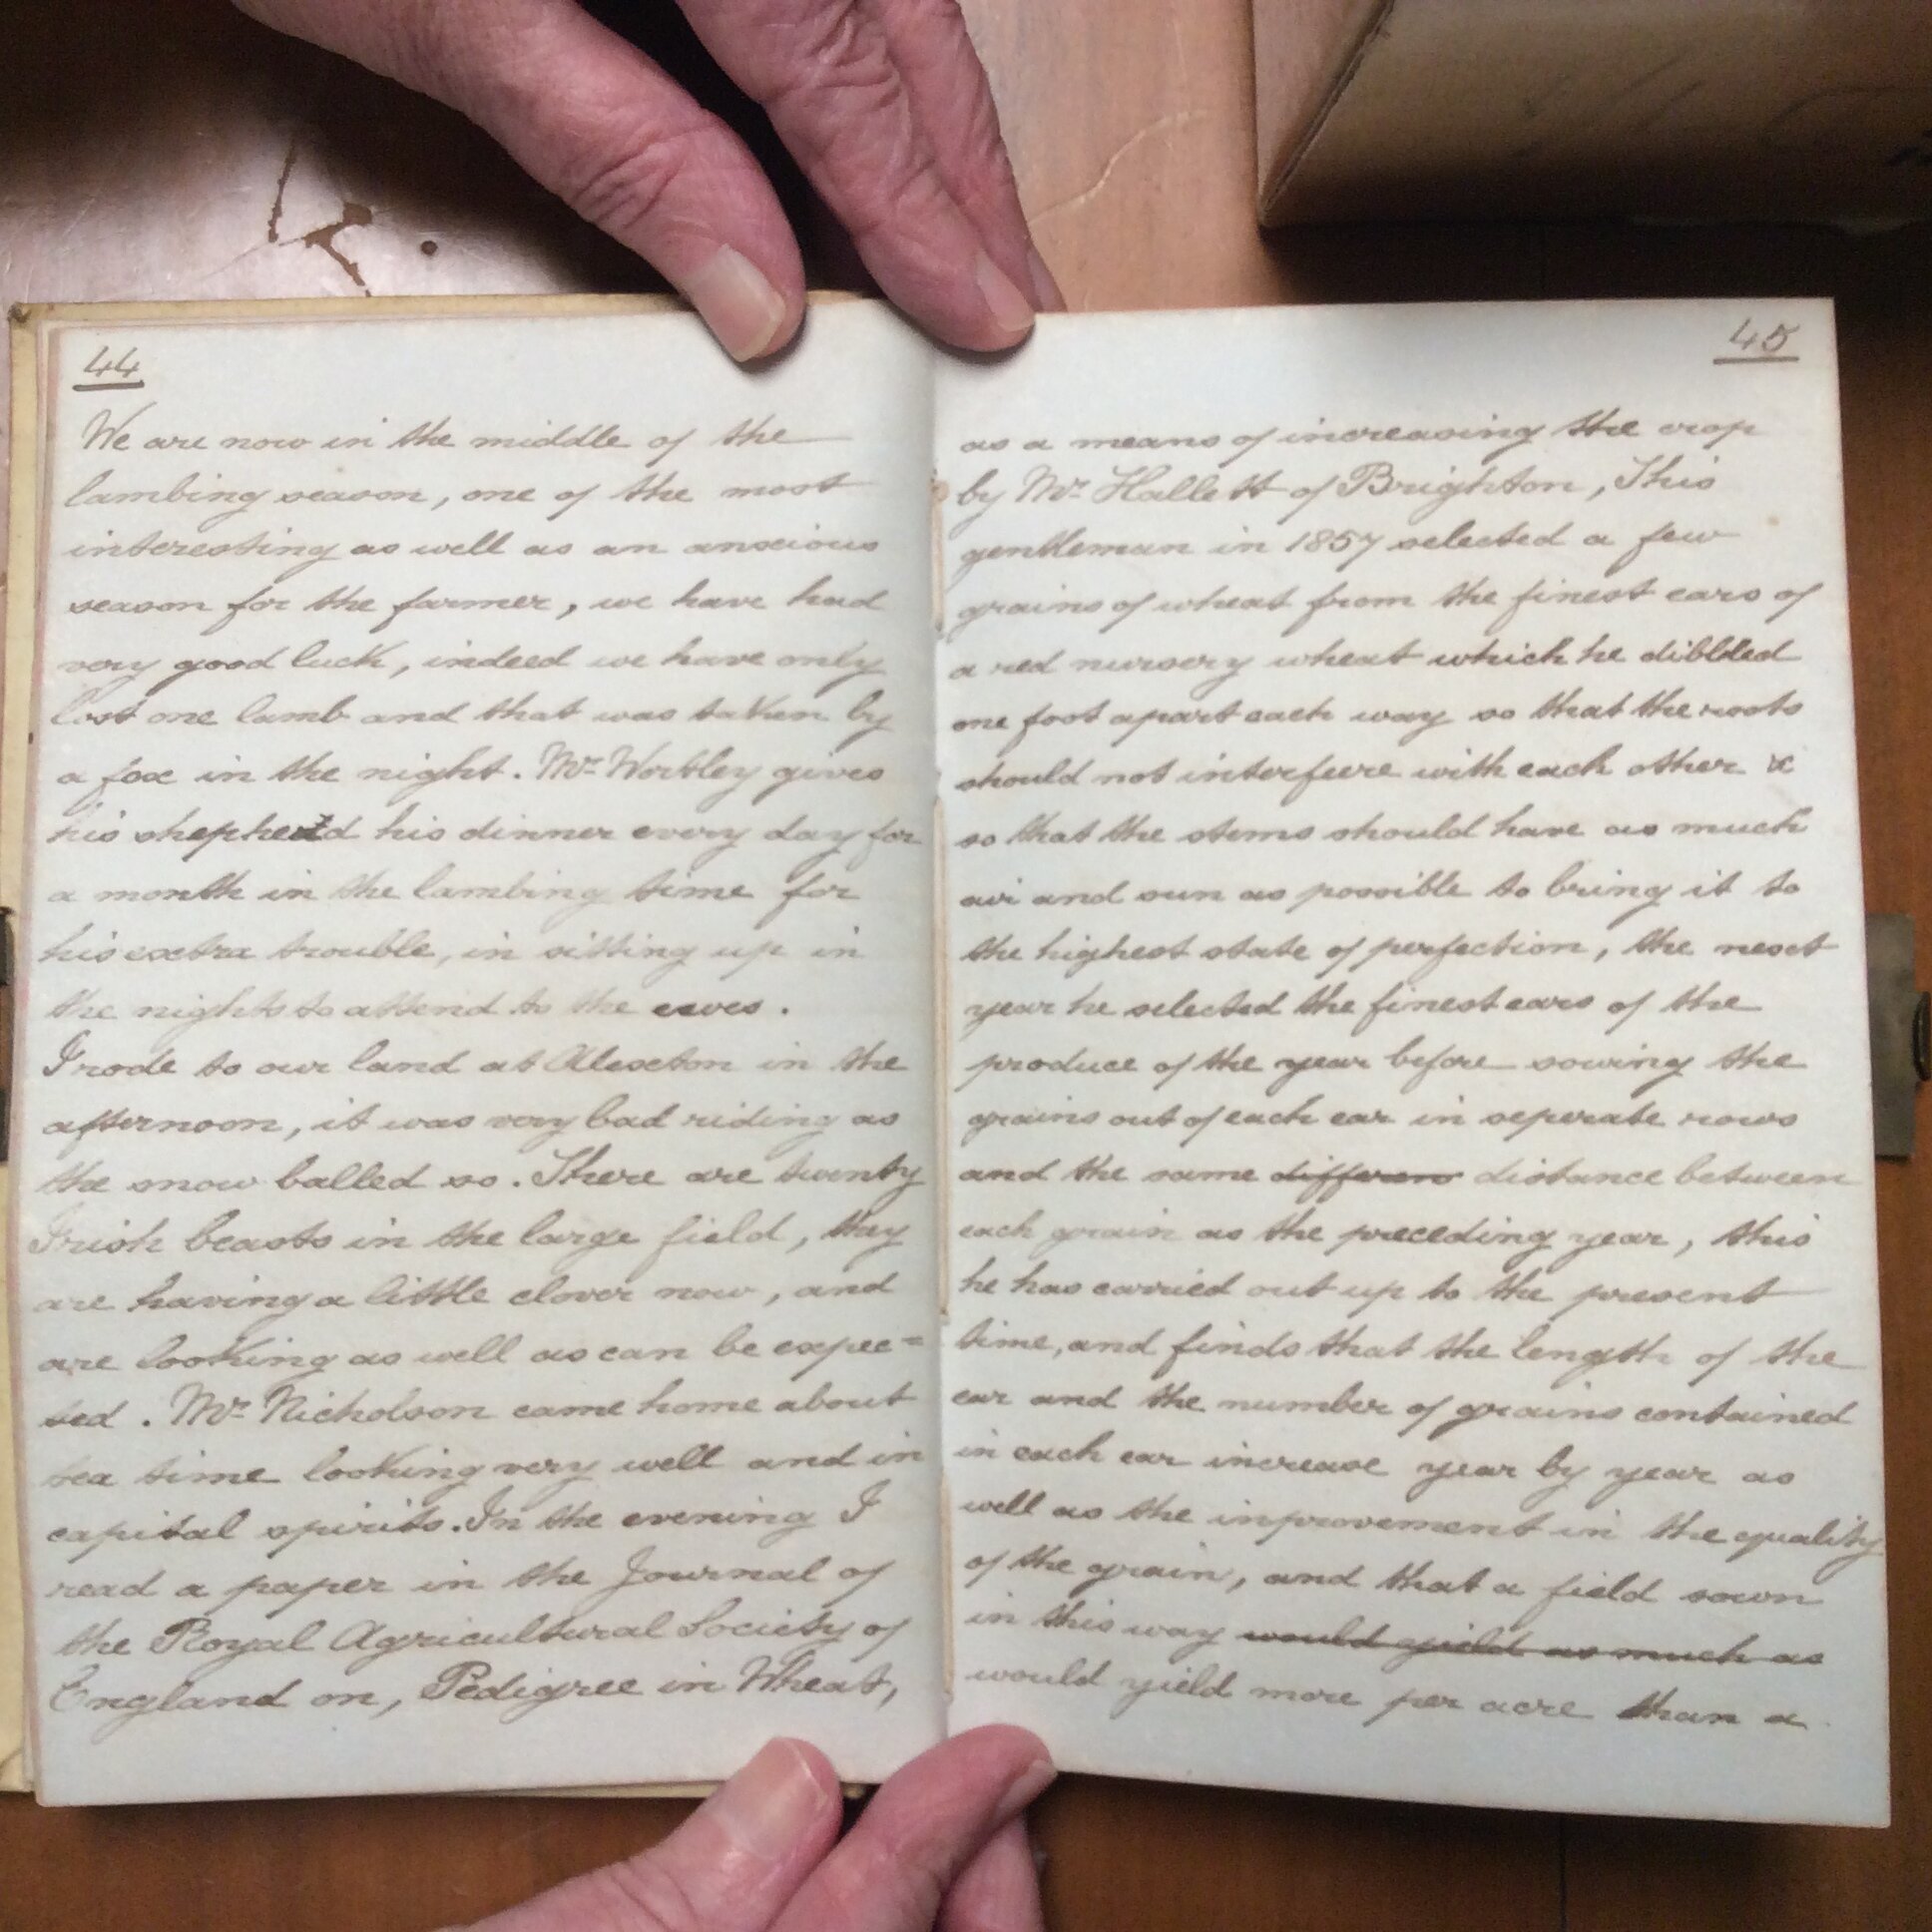 44
We are now in the middle of the
lambing season, one of the most
interesting as well as an anxious
season for the farmer, we have had
very good luck, indeed we have only
lost one lamb and that was taken by
a fox in the night. Mr Wortley gives
his shepherd his dinner every day for
a month in the lambing time for
his extra trouble, in sitting up in
the nights to attend to the ewes.
I rode to our land at Alexton in the
afternoon, it was very bad riding as
the snow balled so. There are twenty
Irish beasts in the large field, they
are having a little clover now, and
are looking as well as can be expec=
ted. Mr Nicholson came home about
tea time looking very well and in
capital spirits. In the evening I
read a paper in the Journal of
the Royal Agricultural Society of
England on, Pedigree in Wheat,
45
as a means of increasing the crop
by Mr Hallett of Brighton, This
gentleman in 1857 selected a few
grains of wheat from the finest ears of
a red nursery wheat which he diblded
one foot apart each way so that the roots
should not interfeere with each other &
so that the stems should have as much
air and sun as possible to bring it to
the highest state of perfection, the next
year he selected the finest ears of the
produce of the year before sowing the
grains out of each ear in seperate rows
and the same differen distance between
each grain as the preceding year, this
he has carried out up to the present
time, and finds that the length of the
ear and the number of grains contained
in each ear increase year by year as
well as the improvement in the quality
of the grain, and that a field sown
in this way would yield as much as
would yield more per acre than a